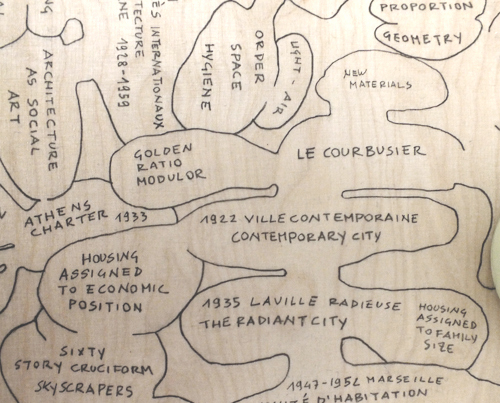 PROPORTION
GEOMETRY
NEW
MATERIALS
LIGHT - AIR
ORDER
SPACE
HYGIENE
INTERNATIONAUX
1928-1959
ARCHITECTURE
AS SOCIAL
ART
GOLDEN
RATIO
MODULOR
LE COURBUSIER
ATHENS
CHARTER 1933
1922 VILLE CONTEMPORAINE
CONTEMPORARY CITY
HOUSING
ASSIGNED
TO ECONOMIC
POSITION
1935 LAVILLE RADIEUSE
THE RADIANT CITY
HOUSING
ASSIGNED
TO FAMILY
SIZE
SIXTY
STORY CRUCIFORM
SKYSCRAPERS
1947-1952 MARSEILLE
D'HABITATION